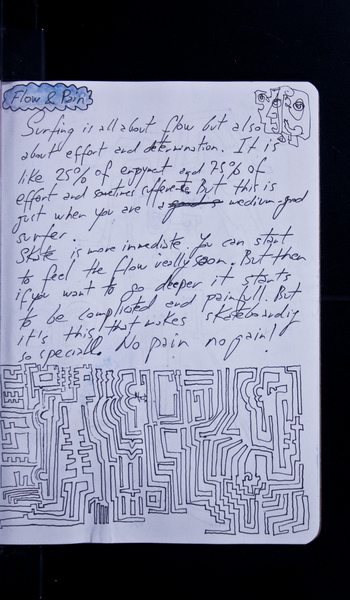 Flow & Pain
Surfing is all about flow but also
about effort and determination. It is
like 25% of enjoymet and 75% of
effort and sometimes sufferente. But this is
just when you are a medium-good
surfer.
Skate is more inmediate. You can start
to feel the flow really soon. But then
if you want to go deeper it starts
to be complicated and painfull. But
it's this that makes skateboarding
so special. No pain no gain!